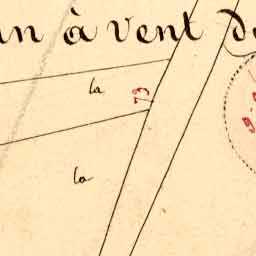 un à vent de
la
73
la